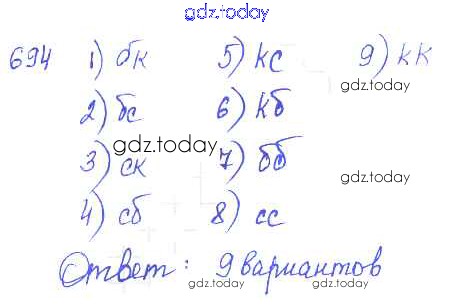 gdz.today
694 1) бк 5) кс 9) кк
2) бс 6) кб
gdz.today
gdz.today
3) ск 7) бб
gdz.today
4) сб 8) сс
Ответ: 9 вариантов
gdz.today
gdz.today